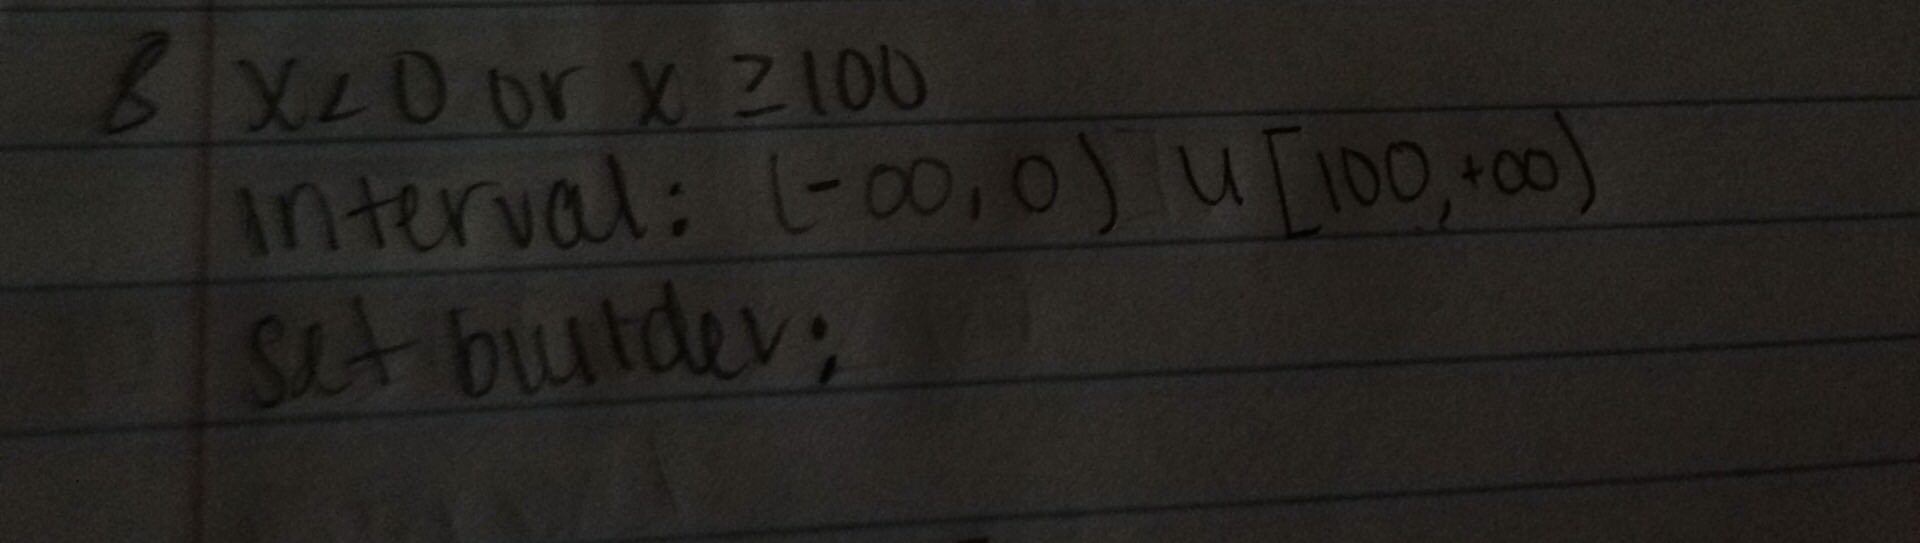 8 x<0 or x ≥100
interval: (-∞, 0) U [100, +∞)
set builder: